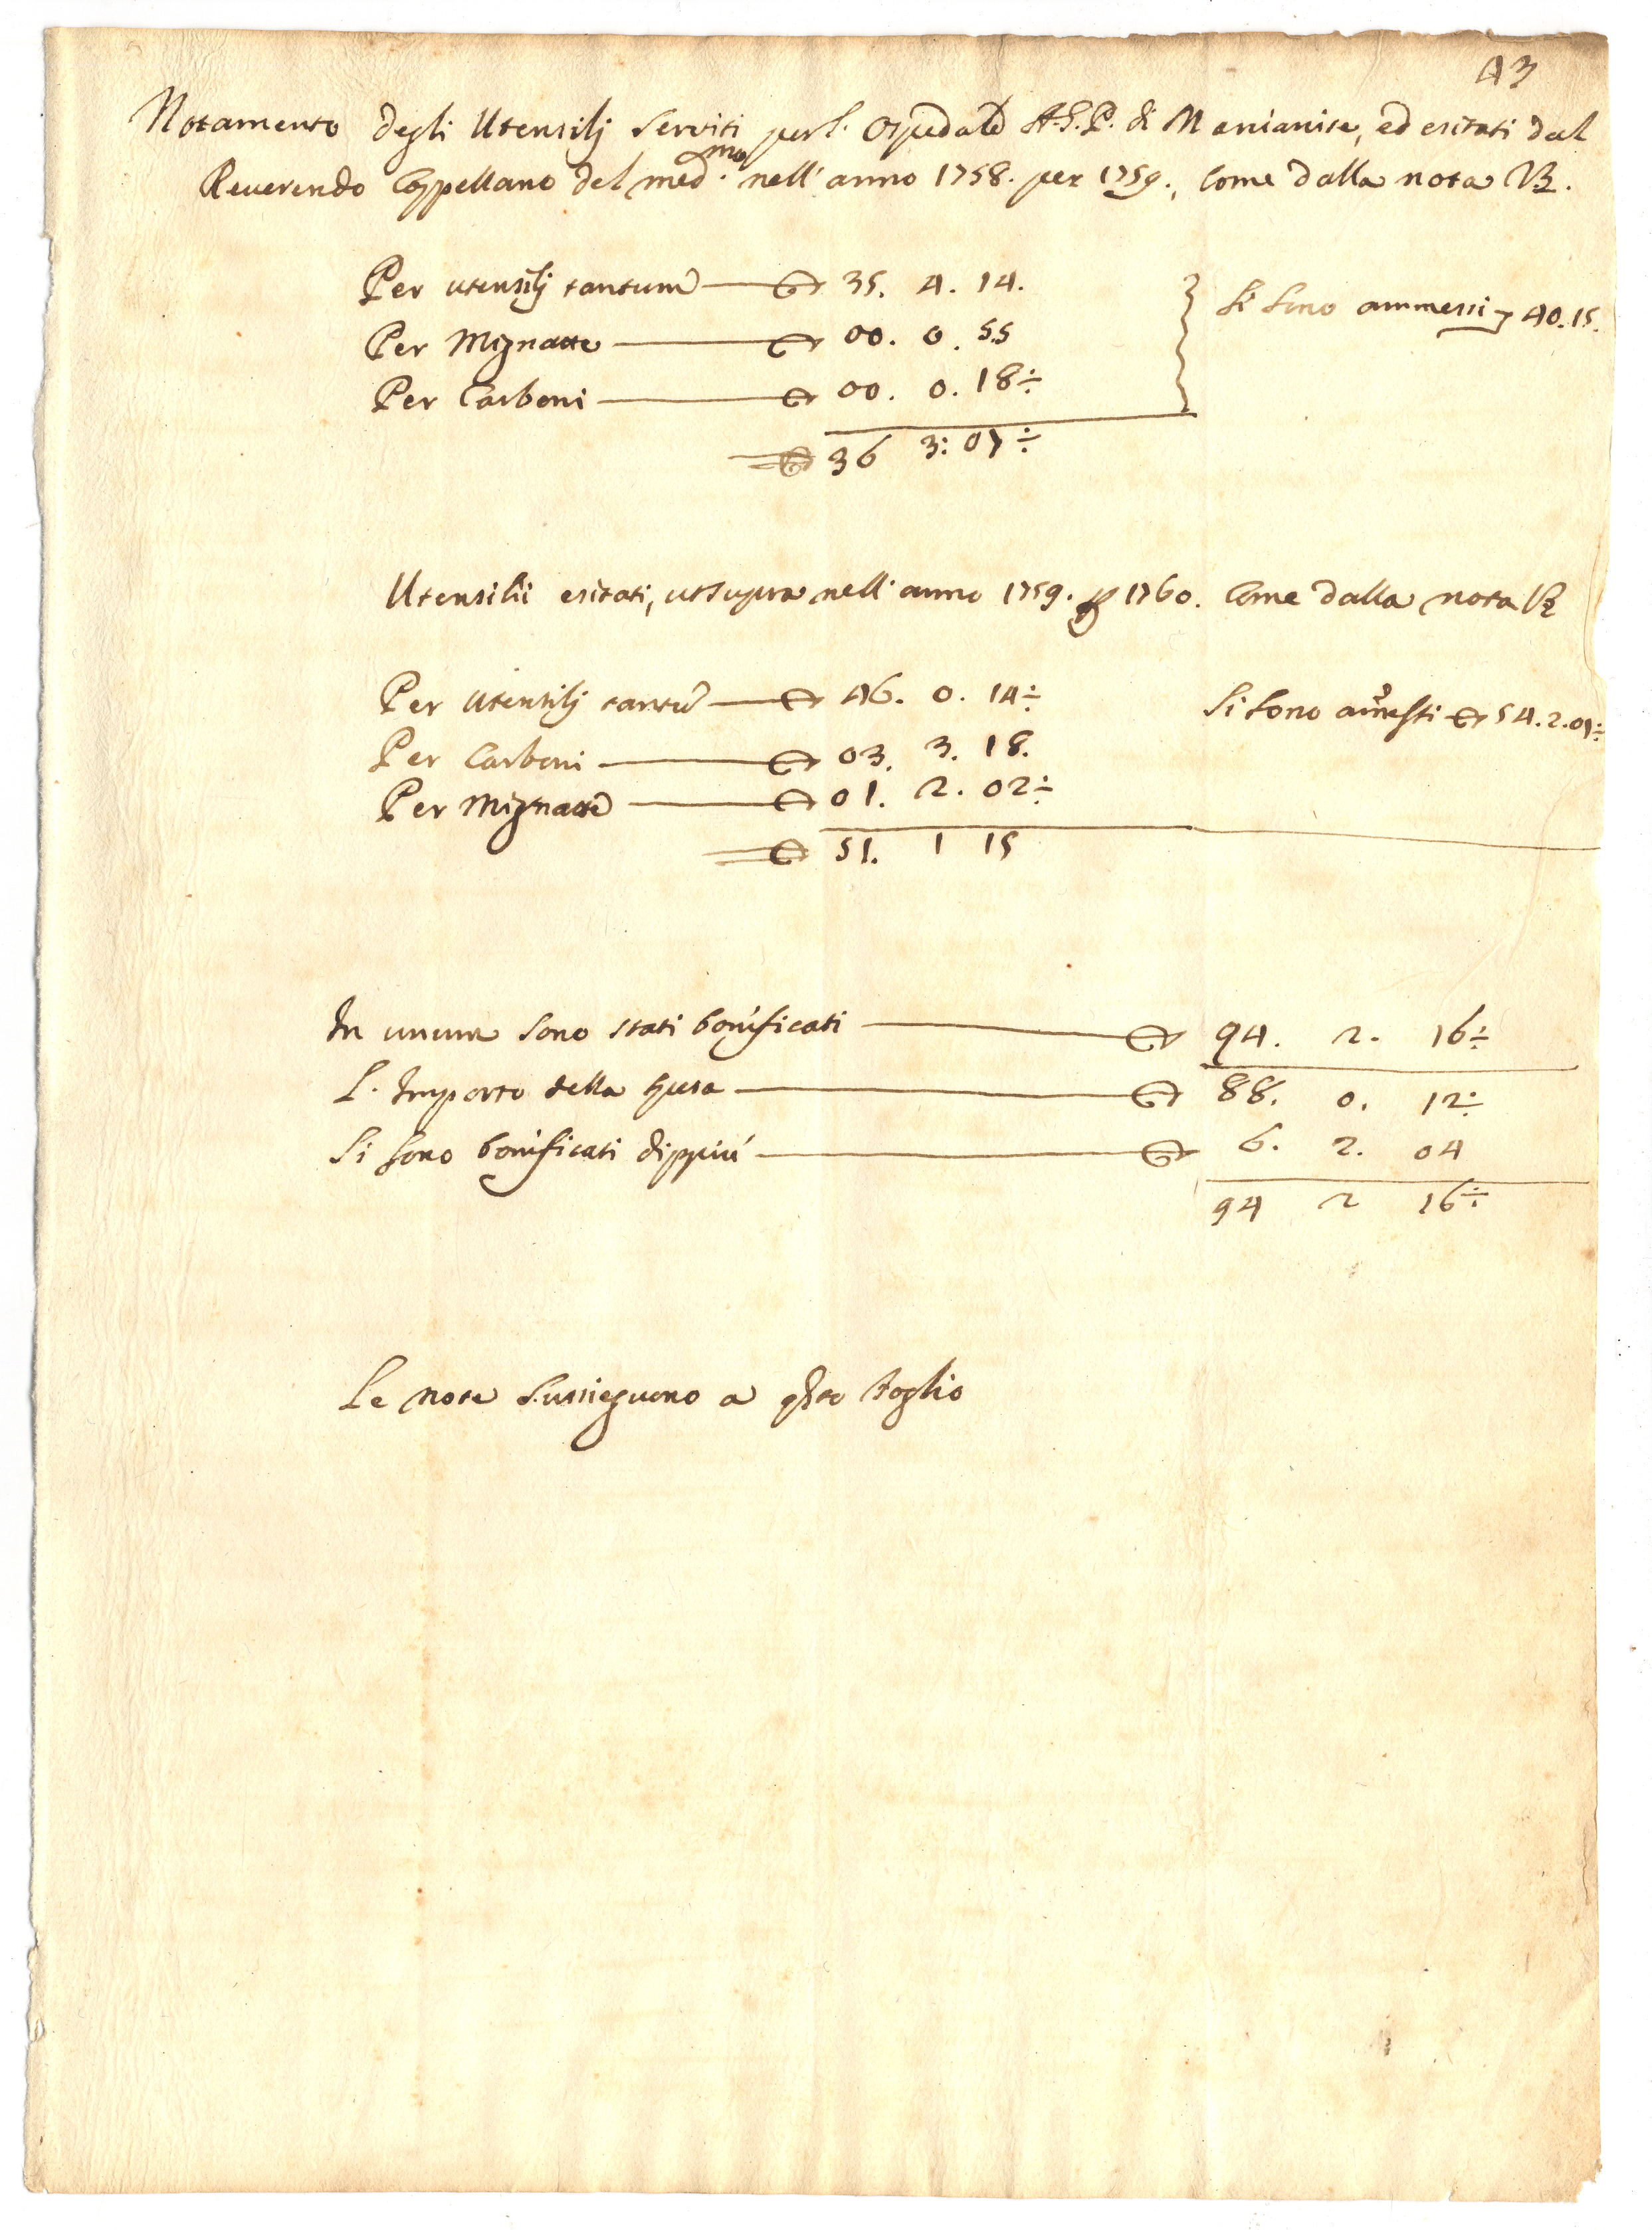 43
Notamento degli Utensilj serviti per l. Ospedale A.G.P. di Manianise, ed esitati dal
Reverendo Cappellano del med.mo nell' anno 1758. per 1759., Come dalla nota
Per utensilj tantum 35. 4. 14.
Si sono ammessi 40.15.
Per Mignatte 00. 0. 55
Per Carboni 00. 0. 18÷
36 3: 07÷
Utensilii esitati, utsupra nell' anno 1759. p 1760. Come dalla nota
Per Utensilj tantū 46. 0. 14÷
Si sono am̃essi 54.2.01÷
Per Carboni 03. 3. 18.
Per Mignatte 01. 2. 02÷
51. 1 15
In unum sono stati bonificati 94. 2. 16÷
L. Importo della spesa 88. 0. 12÷
Si sono bonificati dippiù 6. 2. 04
94 2 16÷
Le note sussieguono a qsto foglio